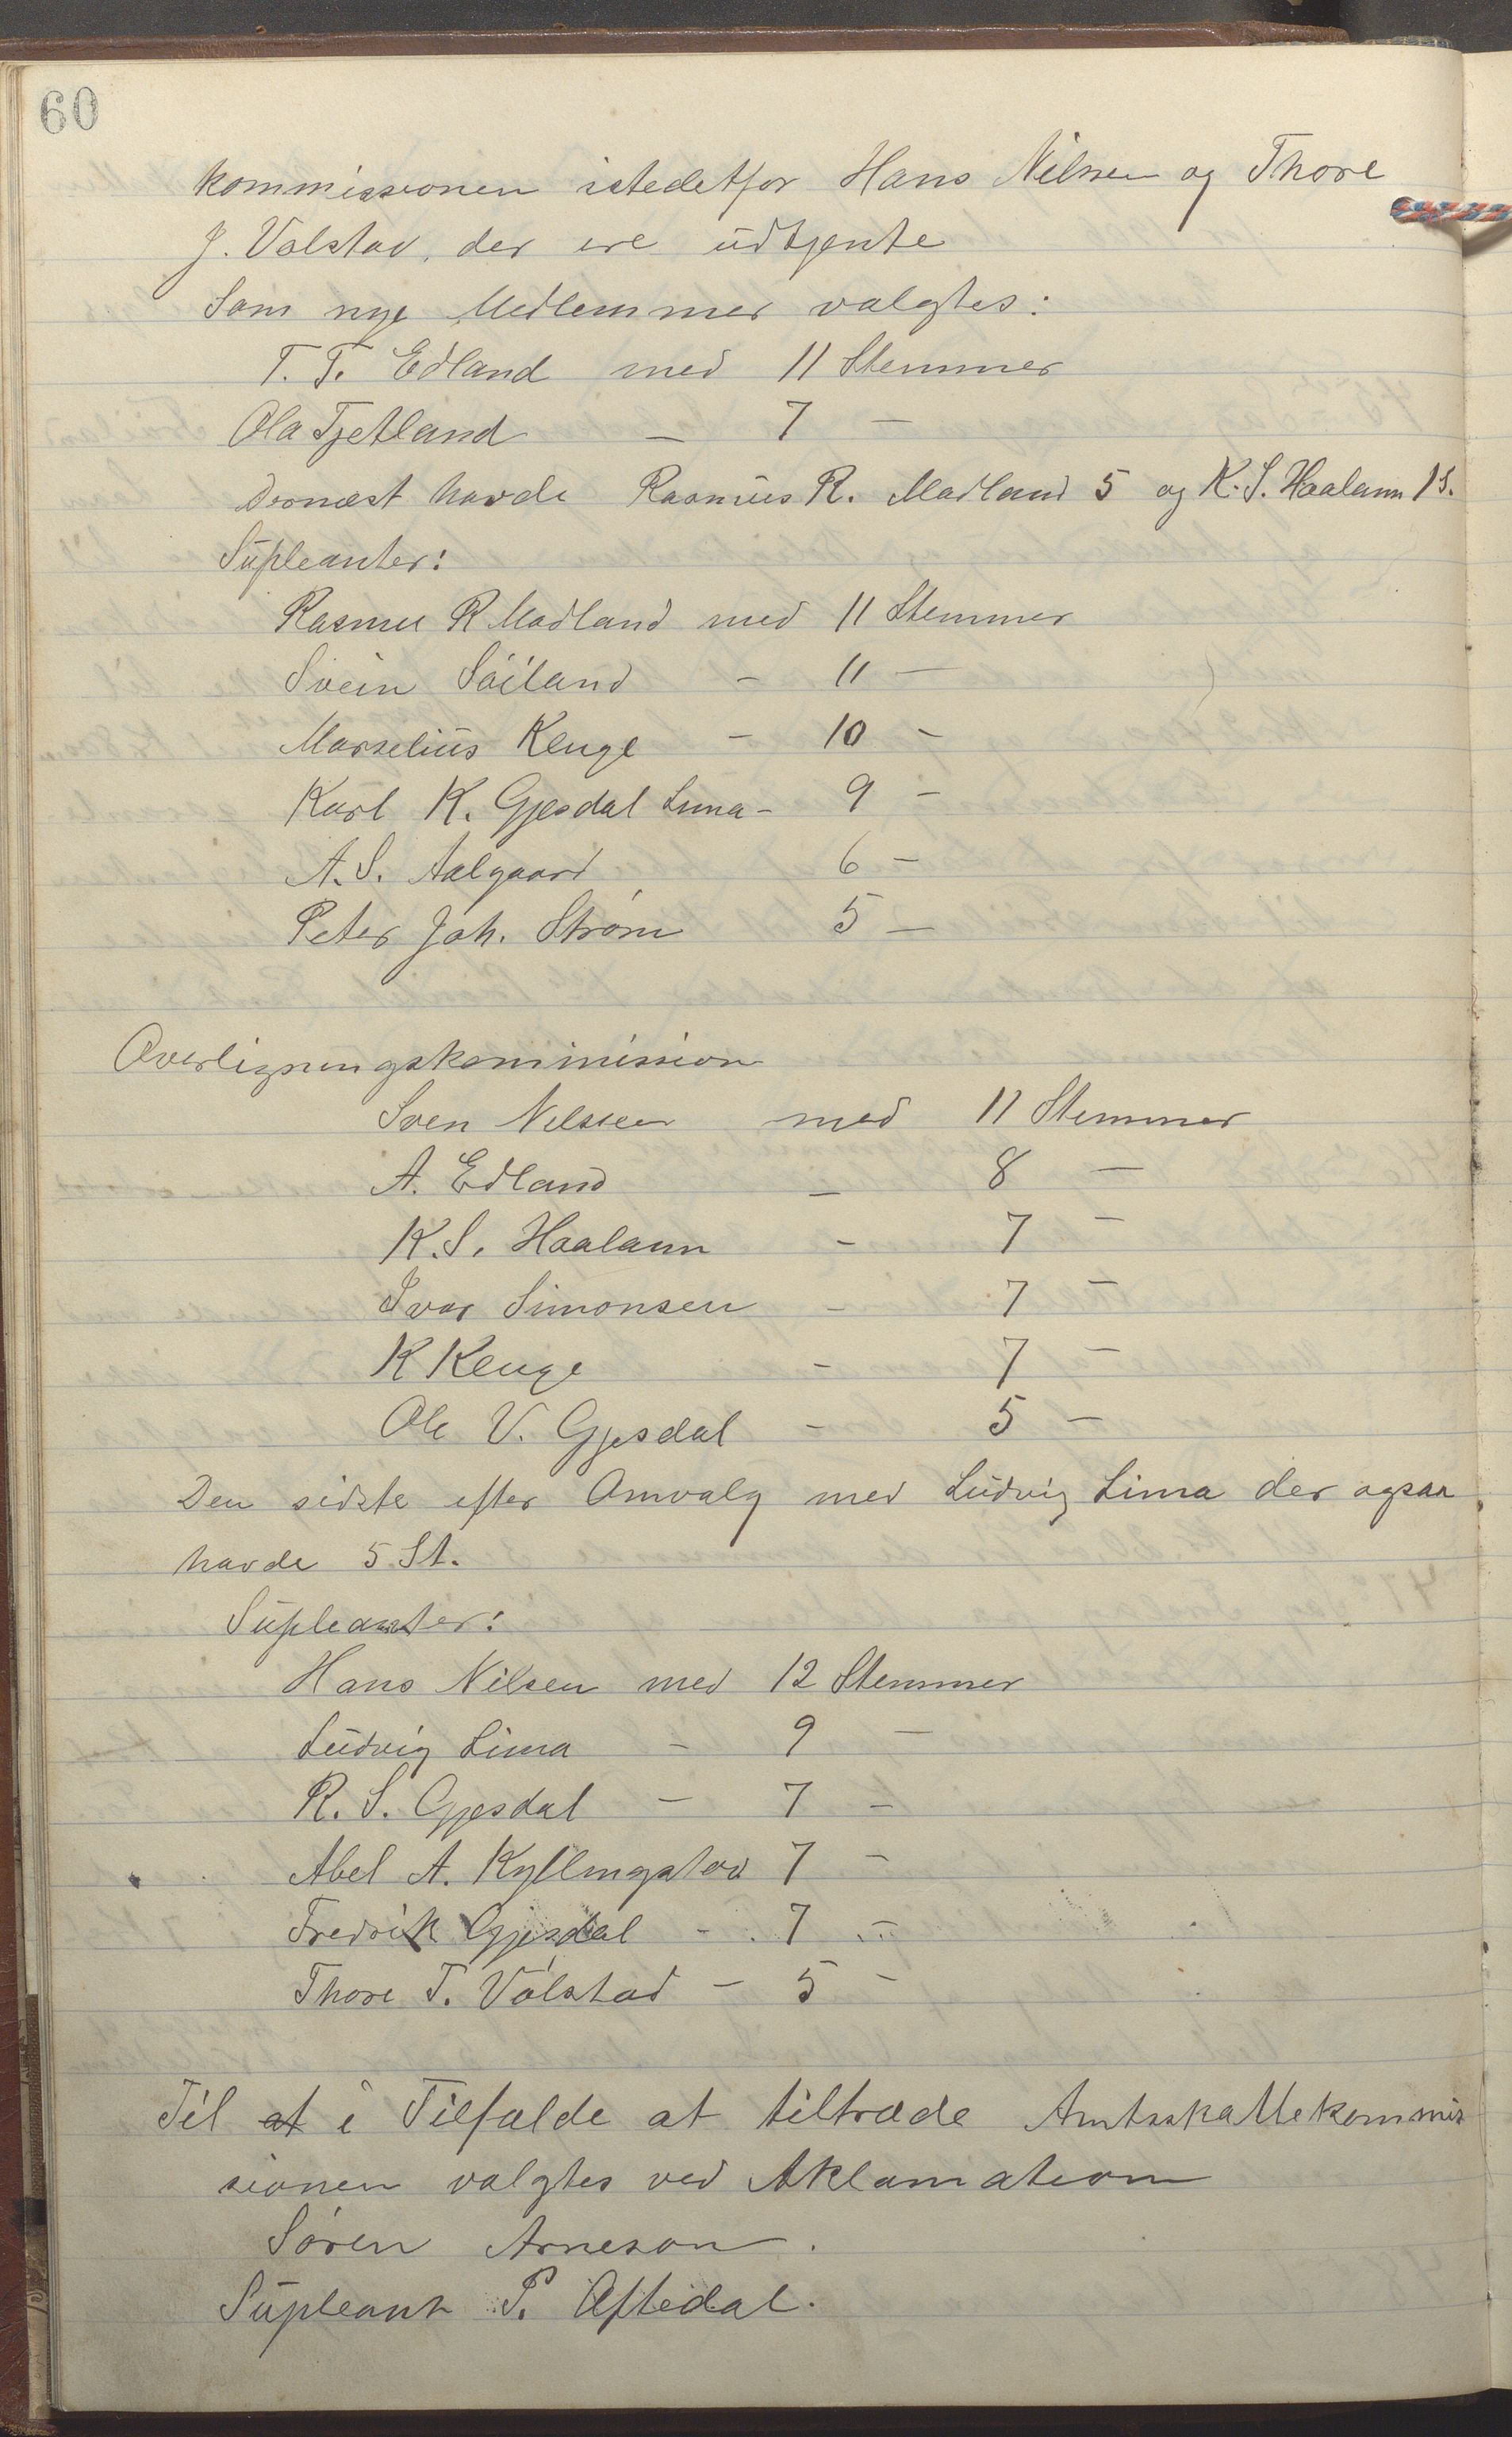 60
kommissionen istedetfor Hans Nilsen og Thore
J.Válstad, der ere udtjente
Som nye Medlemmer valgtes:
T. T. Edland med 11 Stemmer
Ola Tjetland — 7 —
Dernæst havde Rasmus R. Madland 5 og K. S. Haalann 1 S.
Supleanter:
Rasmus R Madland med 11 Stemmer
Svein Søiland - 11 —
Marselius Kenge - 10 -
Karl K. Gjesdal Lima - 9 -
A. S. Aalgaard 6 -
Peter Joh. Strøm 5 —
Overligningskommission
Sven Nilssen med 11 Stemmer
A. Edland - 8 —
K. S. Haalann - 7 -
Ivar Simonsen - 7 -
K Kenge - 7 -
Ole V. Gjesdal - 5 -
Den sidste efter Omvalg med Ludvig Lima der ogsaa
havde 5 St.
Supleanter:
Hans Nilsen med 12 Stemmer
Ludvig Lima - 9 —
R. S. Gjesdal - 7 -
Abel A. Kyllingstad 7 -
Fredrik Gjesdal - 7 -
Thore T. Válstad - 5 -
Til at i Tilfælde at tiltræde Amtsskattekommis
sionen valgtes ved Aklamation
Søren Arneson.
Supleant P. Oftedal.